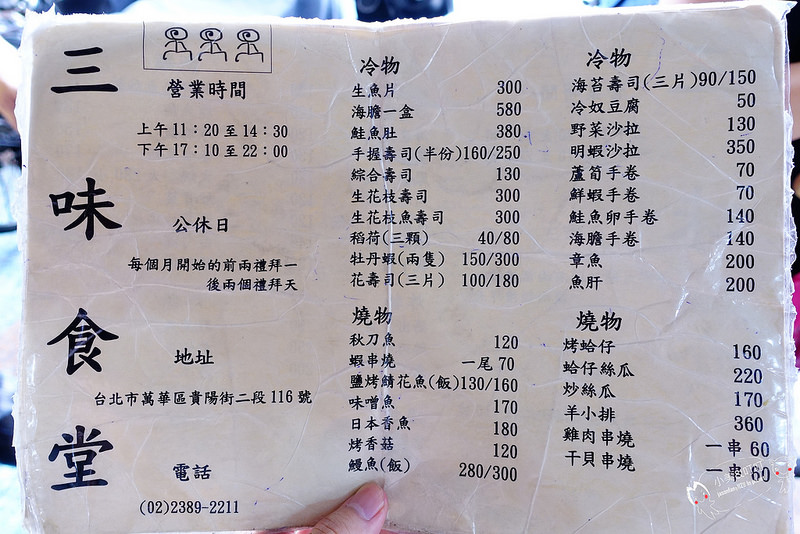 三味食堂
營業時間
上午11：20至14：30
下午17：10至22：00
公休日
每個月開始的前兩禮拜一
後兩個禮拜天
地址
台北市萬華區貴陽街二段116號
電話
(02)2389-2211
冷物
生魚片 300
海膽一盒 580
鮭魚肚 380
手握壽司(半份)160/250
綜合壽司 130
生花枝壽司 300
生花枝魚壽司 300
稻荷(三顆) 40/80
牡丹蝦(兩隻) 150/300
花壽司(三片) 100/180
燒物
秋刀魚 120
蝦串燒 一尾70
鹽烤鯖花魚(飯)130/160
味噌魚 170
日本香魚 180
烤香菇 120
鰻魚(飯) 280/300
冷物
海苔壽司(三片)90/150
冷奴豆腐 50
野菜沙拉 130
明蝦沙拉 350
蘆筍手卷 70
鮮蝦手卷 70
鮭魚卵手卷 140
海膽手卷 140
章魚 200
魚肝 200
燒物
烤蛤仔 160
蛤仔絲瓜 220
炒絲瓜 170
羊小排 360
雞肉串燒 一串60
干貝串燒 一串60